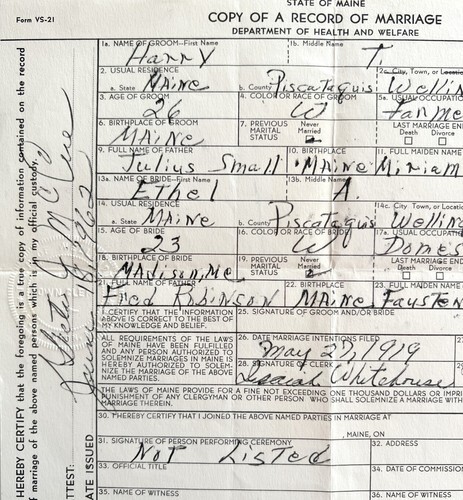 STATE OF MAINE
Form VS-21
COPY OF A RECORD OF MARRIAGE
DEPARTMENT OF HEALTH AND WELFARE
1a. NAME OF GROOM—First Name 1b. Middle Name
Harry T.
2. USUAL RESIDENCE 2c. City, Town, or Locati
a. State Maine b. County Piscataquis Wellin
3. AGE OF GROOM 4. COLOR OR RACE OF GROOM 5a. USUAL OCCUPATI
26 W Farme
6. BIRTHPLACE OF GROOM 7. PREVIOUS MARITAL STATUS Never Married LAST MARRIAGE END
Maine Death Divorce
9. FULL NAME OF FATHER 10. BIRTHPLACE 11. FULL MAIDEN NAME
Julius Small Maine Miriam
13a. NAME OF BRIDE—First Name 13b. Middle Name
Ethel A.
14. USUAL RESIDENCE 14c. City, Town, or Locatio
a. State Maine b. County Piscataquis Welling
15. AGE OF BRIDE 16. COLOR OR RACE OF BRIDE 17a. USUAL OCCUPATI
23 W Domes
18. BIRTHPLACE OF BRIDE 19. PREVIOUS MARITAL STATUS Never Married LAST MARRIAGE END
Madison, Me Death Divorce
21. FULL NAME OF FATHER 22. BIRTHPLACE 23. FULL MAIDEN NAME
Fred Robinson Maine
I CERTIFY THAT THE INFORMATION 25. SIGNATURE OF GROOM AND/OR BRIDE
ABOVE IS CORRECT TO THE BEST OF
MY KNOWLEDGE AND BELIEF.
ALL REQUIREMENTS OF THE LAWS 26. DATE MARRIAGE INTENTIONS FILED
OF MAINE HAVE BEEN FULFILLED May 21, 1919
AND ANY PERSON AUTHORIZED TO
SOLEMNIZE MARRIAGES IN MAINE IS 28. SIGNATURE OF CLERK
HEREBY AUTHORIZED TO SOLEM- Isaiah Whitehouse
NIZE THE MARRIAGE OF THE ABOVE
NAMED PARTIES.
THE LAWS OF MAINE PROVIDE FOR A FINE NOT EXCEEDING ONE THOUSAND DOLLARS OR IMPRI
PUNISHMENT OF ANY CLERGYMAN OR OTHER PERSON WHO SHALL SOLEMNIZE A MARRIAGE WITH
MARRIAGE THEREIN.
30. I HEREBY CERTIFY THAT I JOINED THE ABOVE NAMED PARTIES IN MARRIAGE AT
, MAINE, ON
31. SIGNATURE OF PERSON PERFORMING CEREMONY 32. ADDRESS
Not Listed
33. OFFICIAL TITLE 34. DATE OF COMMISSION
35. NAME OF WITNESS 36. NAME OF WITNESS
HEREBY CERTIFY that the foregoing is a true copy of information contained on the record
of marriage of the above named persons which is in my official custody.
ATTEST:
DATE ISSUED
1962